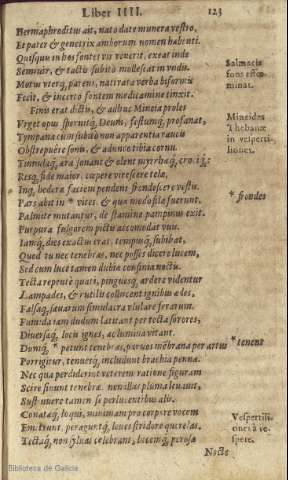 Liber IIII. 123
Hermaphroditus ait, nato date munera vestro,
Et pater & genetrix amborum nomen habenti.
Quisquis in hos fontes vir venerit, exeat inde
Semivir, & tactis subitò mollescat in undis.
Motus uterq; parens, nati rata verba biformis
Fecit, & incerto fontem medicamine tinxit.
Finis erat dictis, & adhuc Mineia proles
Urget opus spernitq; Deum, festumq; profanat,
Tympana cum subitò non apparentia raucis
Obstrepuêre sonis, & adunco tibia cornu,
Tinnulaq; æra sonant & olent myrrhæq; crociq;
Resq; fide maior, cœpere virescere telæ,
Inq; hederæ faciem pendens frondescere vestis.
Pars abit in * vites & quæ modo fila fuerunt,
Palmite mutantur, de stamine pampinus exit.
Purpura fulgorem pictis accomodat uvis.
Iamq; dies exactus erat, tempusq; subibat,
Quod tu nec tenebras, nec posses dicere lucem,
Sed cum luce tamen dubiæ confinia noctis.
Tecta repente quati, pinguesq; ardere videntur
Lampades, & rutilis collucent ignibus ædes,
Falsaq; sævarum simulacra ululare ferarum.
Fumida iamdudum latitant per tecta sorores,
Diversæq; locis ignes, ac lumina vitant.
Dumq; * petunt tenebras, parvos mẽbrana per artus
Porrigitur, tenuesq; includunt brachia pennæ.
Nec qua perdiderint veterem ratione figuram
Scire sinunt tenebræ. non illas pluma levavit,
Sustinuere tamen se perlucentibus alis.
Conatæq; loqui, minimam pro corpore vocem
Emittunt. peraguntq; leves stridore querelas,
Tectaq; non sylvas celebrant, lucemq; perosæ
Nocte
Salmacis
fons effœ-
minat.
Mineides
Thebanæ
in vesperti-
liones.
* frondes
* tenent
Vespertili-
ones à ve-
spere.
Biblioteca de Galicia